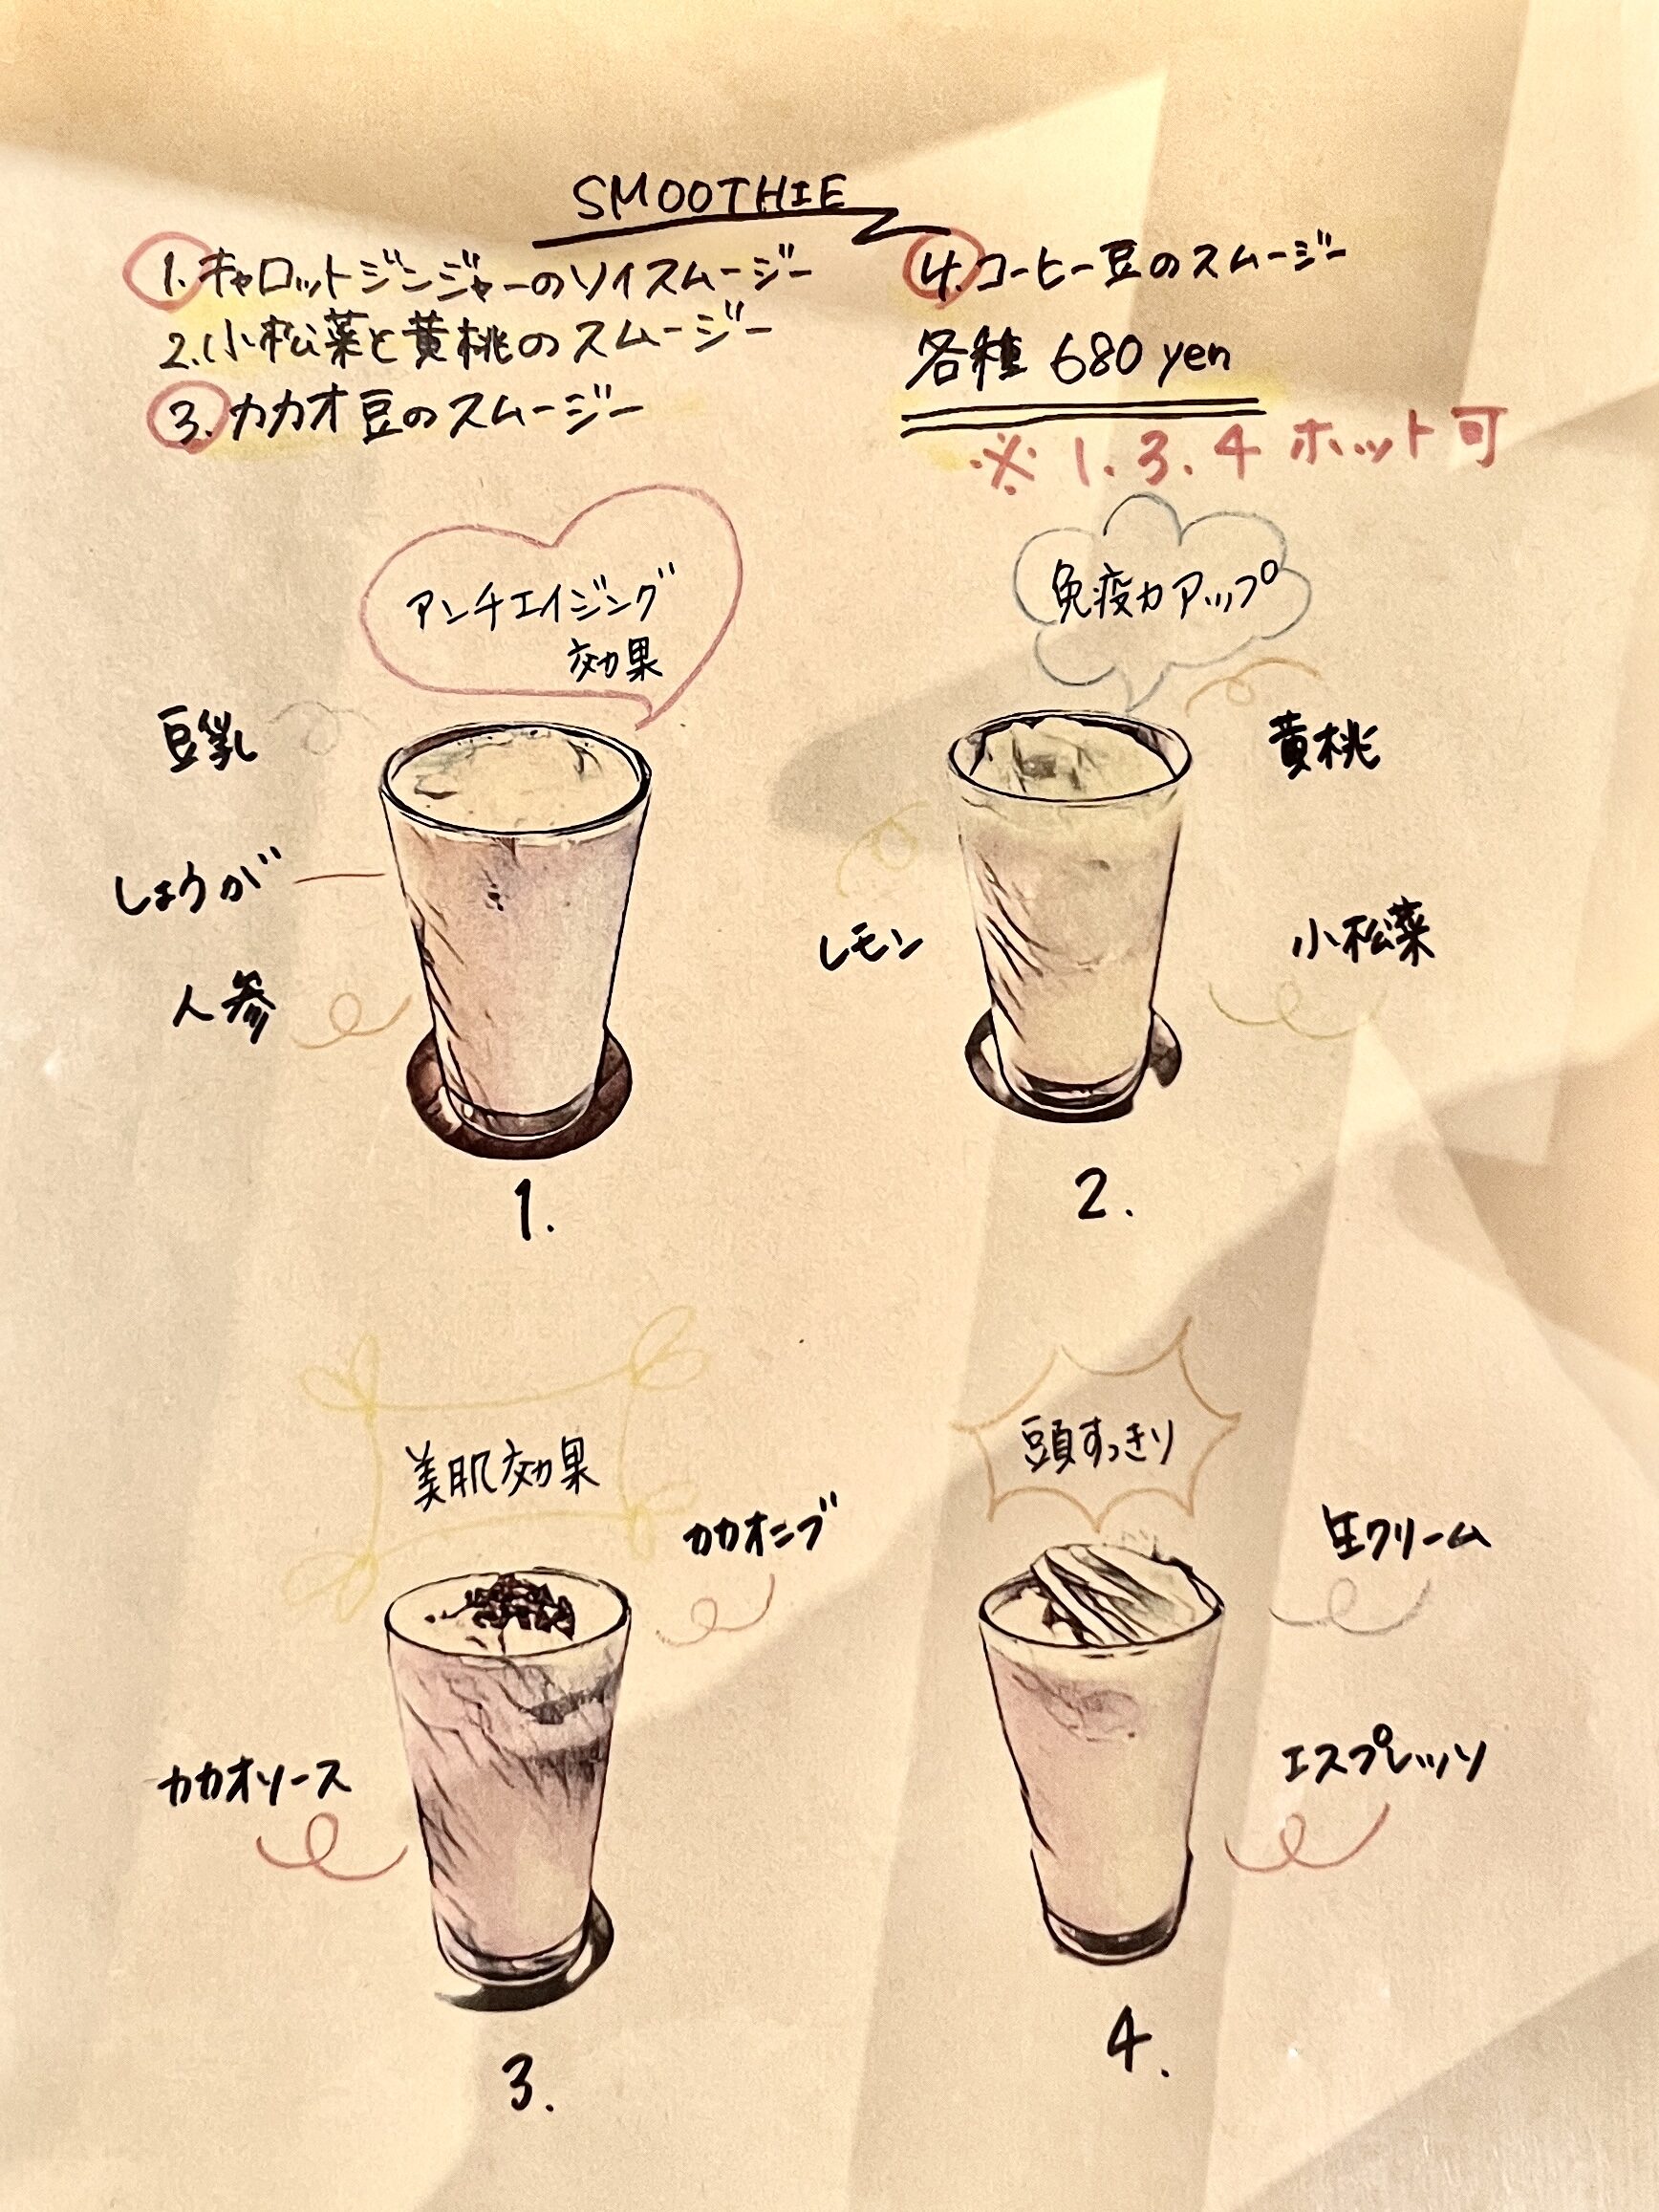 SMOOTHIE
1. キャロットジンジャーのソイスムージー
2. 小松菜と黄桃のスムージー
3. カカオ豆のスムージー
4. コーヒー豆のスムージー
各種 680 yen
※ 1. 3. 4 ホット可
アンチエイジング
効果
豆乳
しょうが
人参
1.
免疫力アップ
黄桃
レモン
小松菜
2.
美肌効果
カカオニブ
カカオソース
3.
頭すっきり
生クリーム
エスプレッソ
4.